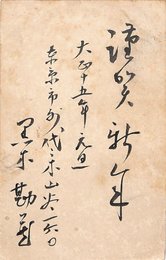 謹賀新年
大正十五年元旦
東京市外代々木山谷一六〇
黒木勘蔵